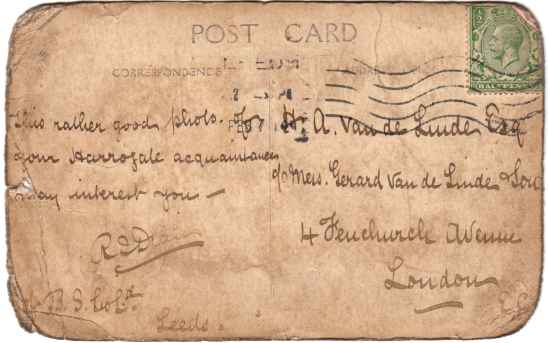 POST CARD
CORRESPONDENCE
HALFPENNY
This rather good photo. of
your Harrogate acquaintances
may interest you —
B. S. Co Ld.
Leeds.
H. A. Van de Linde Esq
c/o Mess. Gerard Van de Linde & Son
4 Fenchurch Avenue
London
E.C.